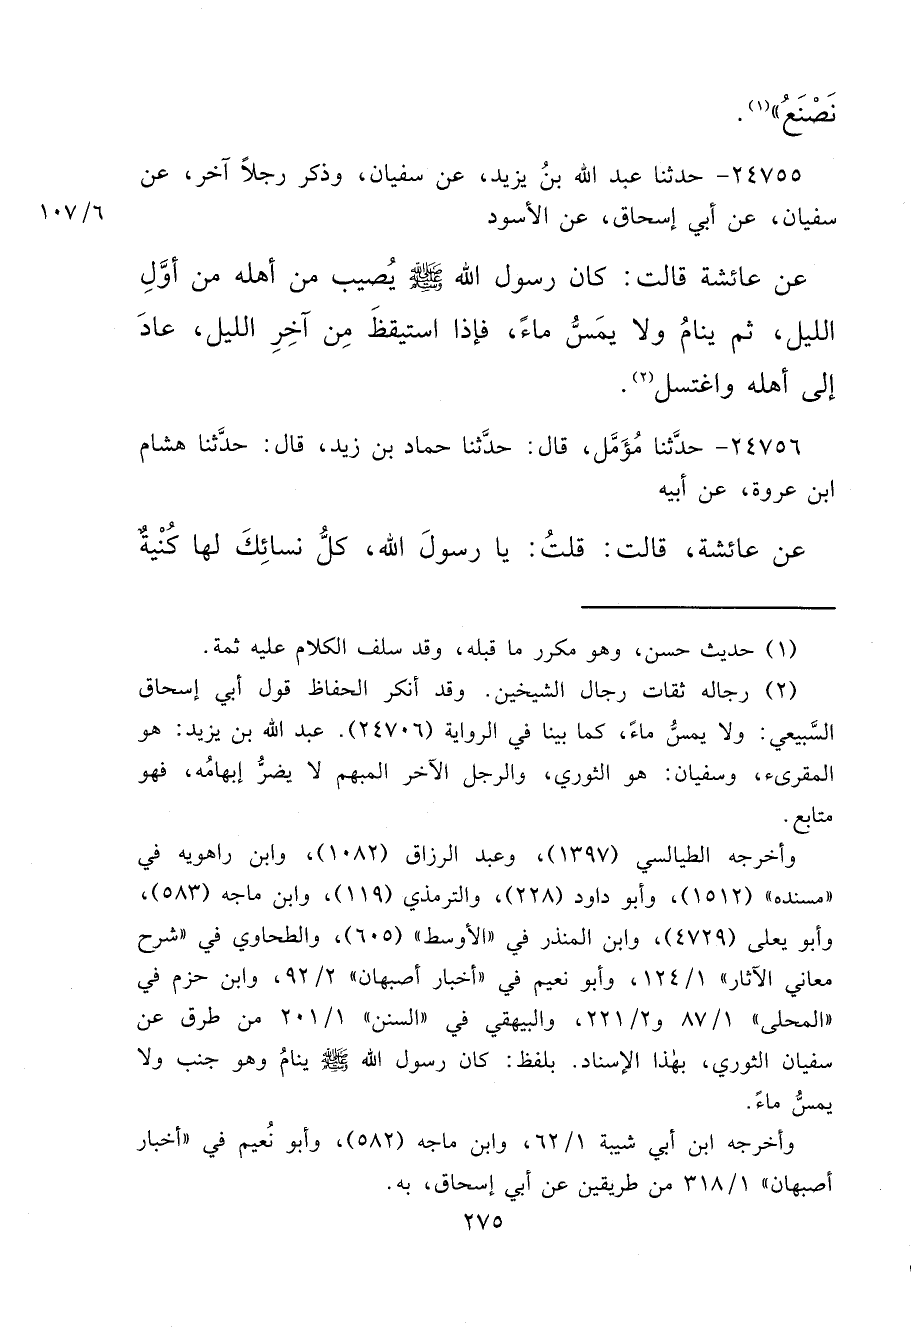 نَصْنَعُ»(١).
٢٤٧٥٥- حدثنا عبد الله بنُ يزيد، عن سفيان، وذكر رجلاً آخر، عن
سفيان، عن أبي إسحاق، عن الأسود
١٠٧/٦
عن عائشة قالت: كان رسول الله ﷺ يُصيب من أهله من أوَّلِ
الليل، ثم ينامُ ولا يمَسُّ ماءً، فإذا استيقظَ مِن آخِرِ الليل، عادَ
إلى أهله واغتسل(٢).
٢٤٧٥٦- حدَّثنا مُؤَمَّل، قال: حدَّثنا حماد بن زيد، قال: حدَّثنا هشام
ابن عروة، عن أبيه
عن عائشة، قالت: قلتُ: يا رسولَ الله، كلُّ نسائِكَ لها كُنْيةٌ
(١) حديث حسن، وهو مكرر ما قبله، وقد سلف الكلام عليه ثمة.
(٢) رجاله ثقات رجال الشيخين. وقد أنكر الحفاظ قول أبي إسحاق
السَّبيعي: ولا يمسُّ ماءً، كما بينا في الرواية (٢٤٧٠٦). عبد الله بن يزيد: هو
المقرىء، وسفيان: هو الثوري، والرجل الآخر المبهم لا يضرُّ إبهامُه، فهو
متابع.
وأخرجه الطيالسي (١٣٩٧)، وعبد الرزاق (١٠٨٢)، وابن راهويه في
«مسنده» (١٥١٢)، وأبو داود (٢٢٨)، والترمذي (١١٩)، وابن ماجه (٥٨٣)،
وأبو يعلى (٤٧٢٩)، وابن المنذر في «الأوسط» (٦٠٥)، والطحاوي في «شرح
معاني الآثار» ١٢٤/١، وأبو نعيم في «أخبار أصبهان» ٩٢/٢، وابن حزم في
«المحلى» ٨٧/١ و٢٢١/٢، والبيهقي في «السنن» ٢٠١/١ من طرق عن
سفيان الثوري، بهٰذا الإسناد. بلفظ: كان رسول الله ﷺ ينامُ وهو جنب ولا
يمسُّ ماءً.
وأخرجه ابن أبي شيبة ٦٢/١، وابن ماجه (٥٨٢)، وأبو نُعيم في «أخبار
أصبهان» ٣١٨/١ من طريقين عن أبي إسحاق، به.
٢٧٥